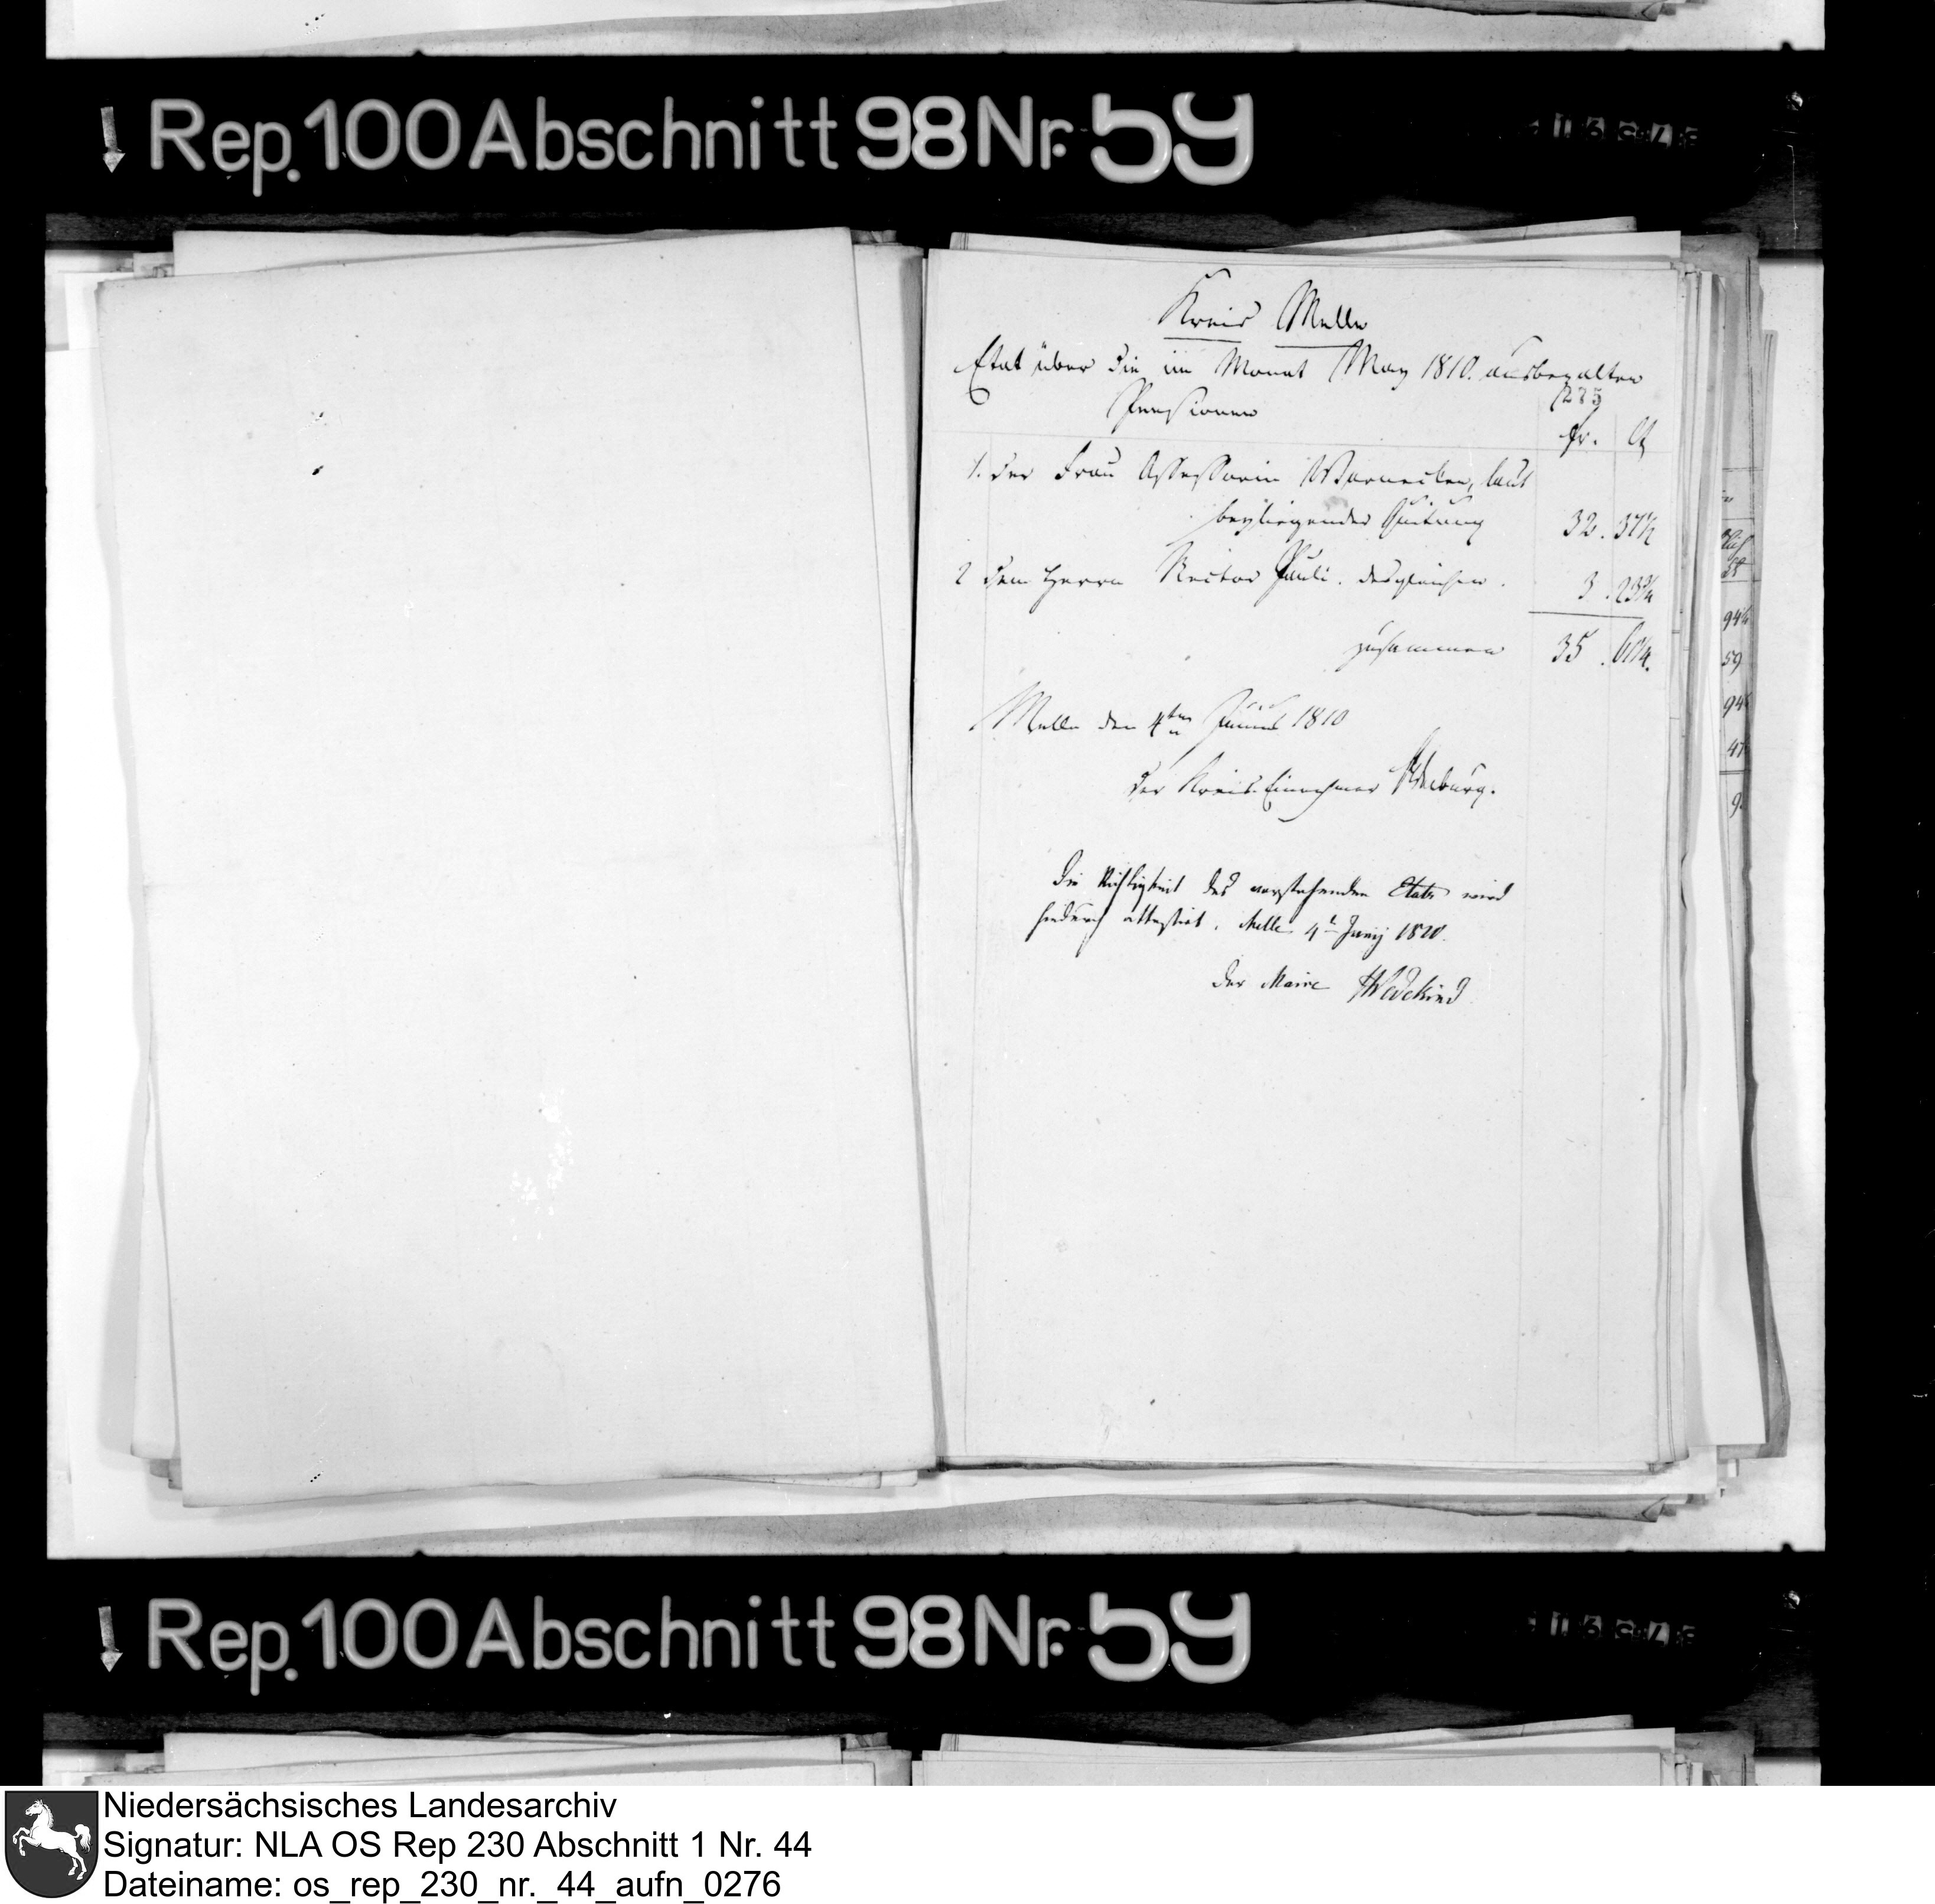 Rep. 100 Abschnitt 98 Nr. 59
Kreis Melle
Etat über die im Monat May 1810. ausbezalten
Pensionen
fr. Ct
1. der Frau Assessorin Warnecken, laut
beyliegender Quitung 32. 37½
2 dem Herrn Rector Pauli. desgleichen. 3. 23¾
zusammen 35. 61¼.
Melle den 4ten Junius 1810
der Kreis-Einnehmer
Die Richtigkeit des vorstehenden Etats wird
hiedurch attestirt. Melle 4t Junij 1810.
Der Maire Wedekind
Rep. 100 Abschnitt 98 Nr. 59
Niedersächsisches Landesarchiv
Signatur: NLA OS Rep 230 Abschnitt 1 Nr. 44
Dateiname: os_rep_230_nr._44_aufn_0276